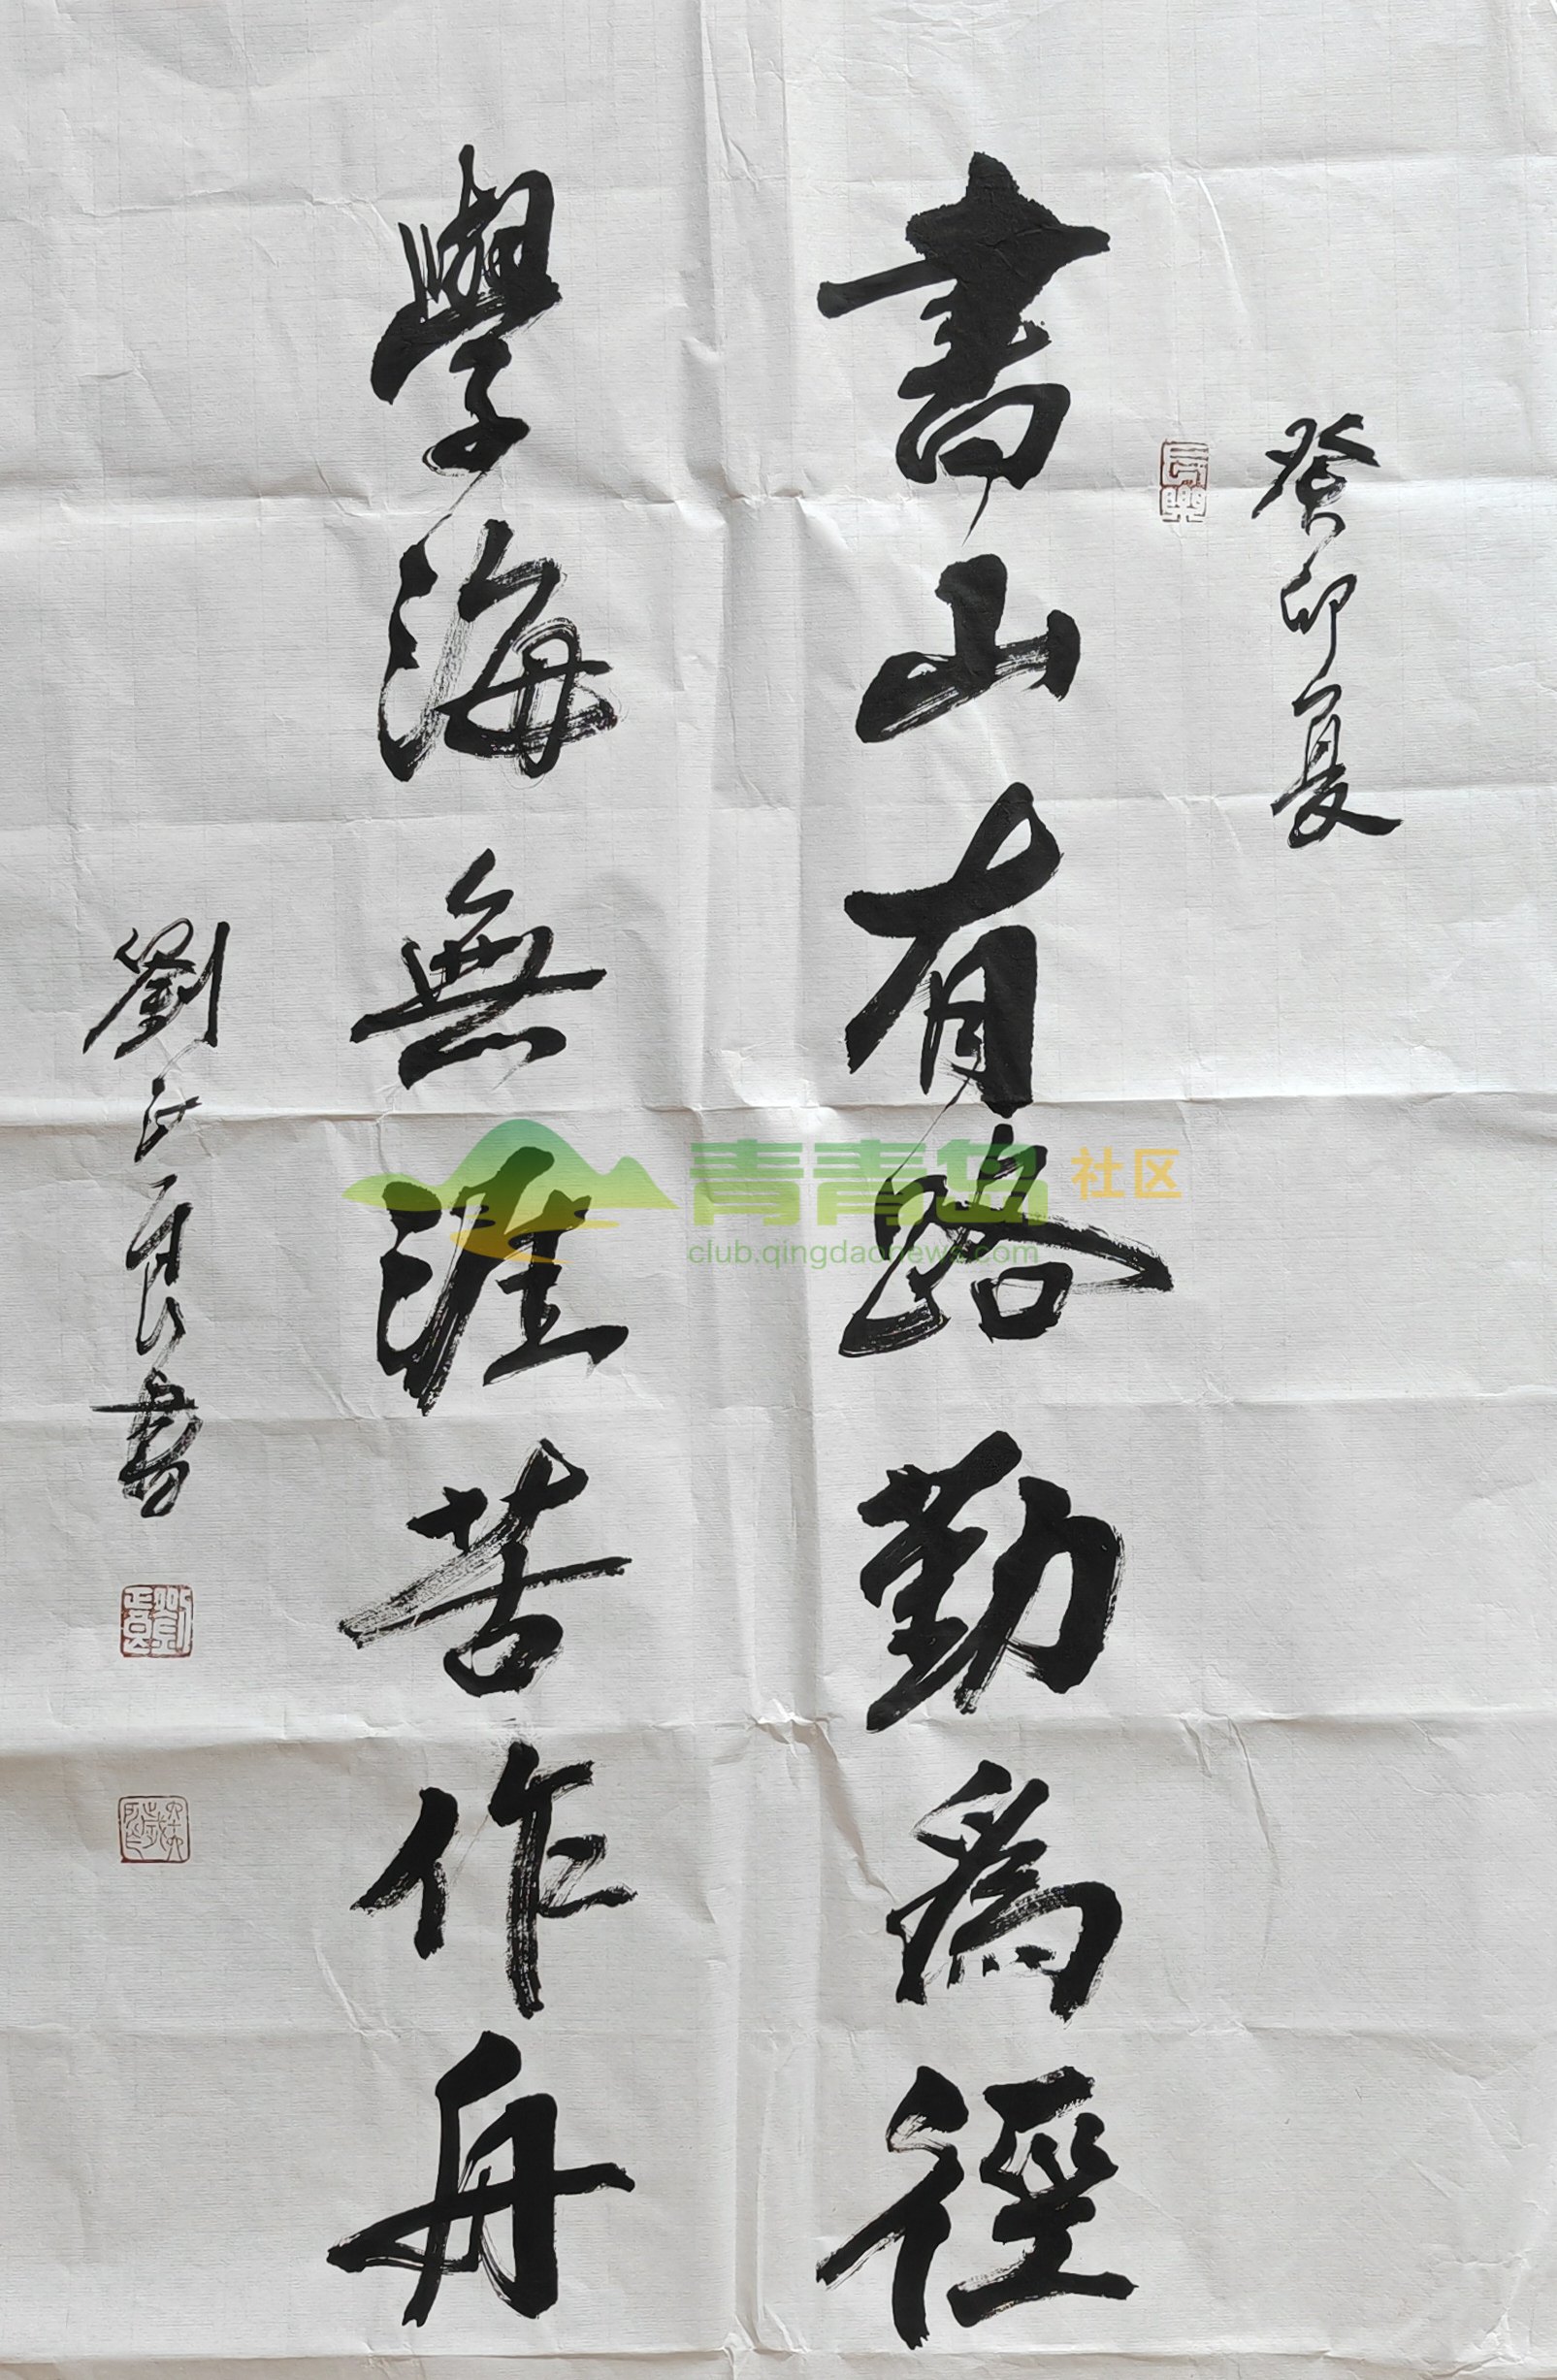 癸卯夏
書山有路勤為徑
學海無涯苦作舟
劉
書
青青岛 社区
club.qingdaonews.com